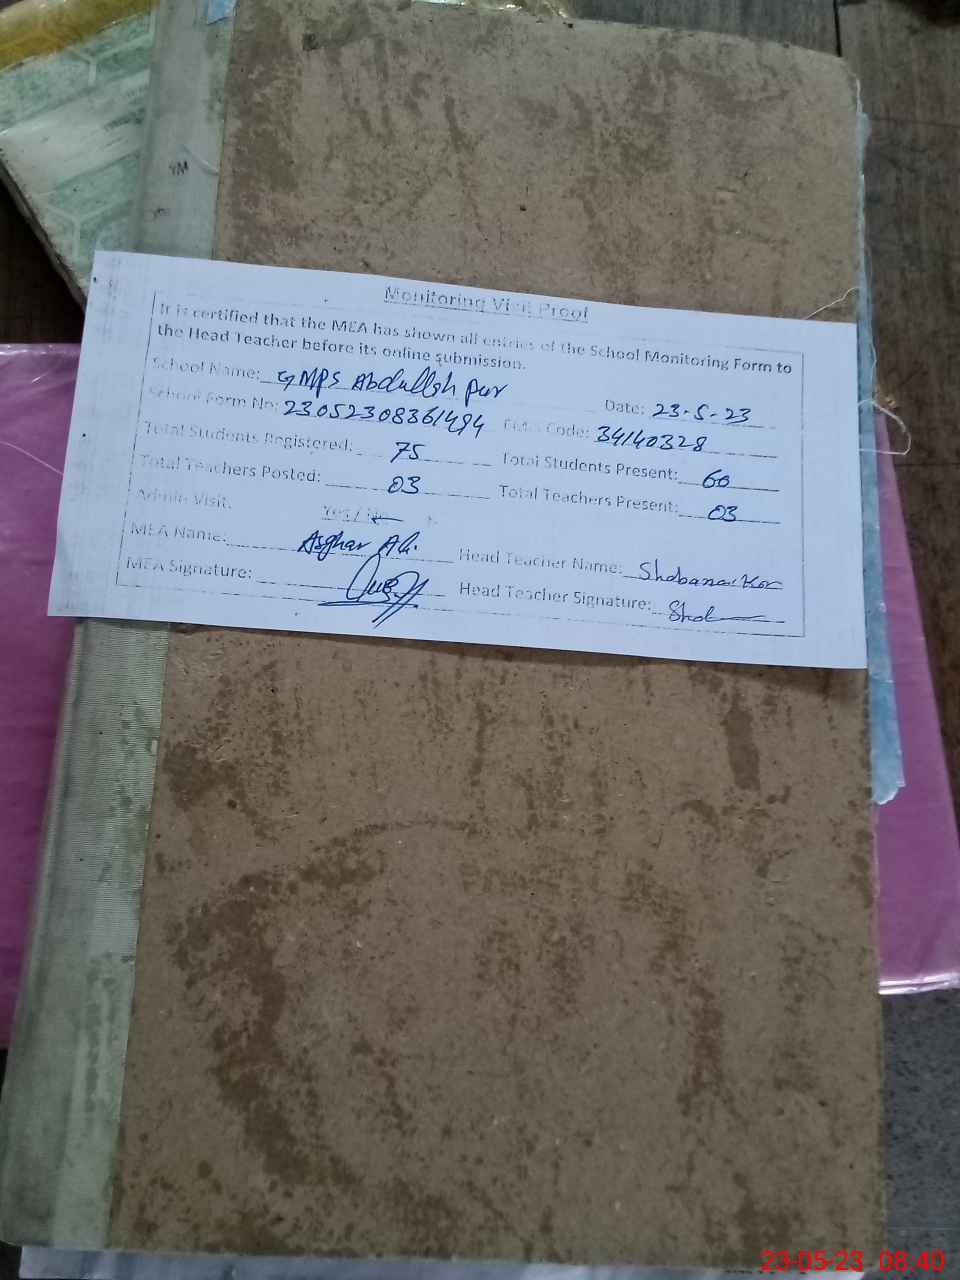 Monitoring Visit Proof
It is certified that the MEA has shown all entries of the School Monitoring Form to
the Head Teacher before its online submission.
School Name: GMPS Abdullah pur Date: 23-5-23
School Form No: 23052308361494 Code: 34140328
Total Students Registered: 75 Total Students Present: 60
Total Teachers Posted: 03 Total Teachers Present: 03
Admin Visit: Yes / No
MEA Name: Asghar Ali. Head Teacher Name: Shabana
MEA Signature: Head Teacher Signature:
23-05-23 08:40